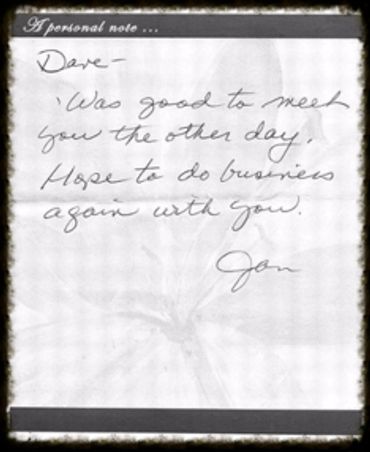 A personal note ...
Dave-
'Was good to meet
you the other day.
Hope to do business
again with you.
Jan